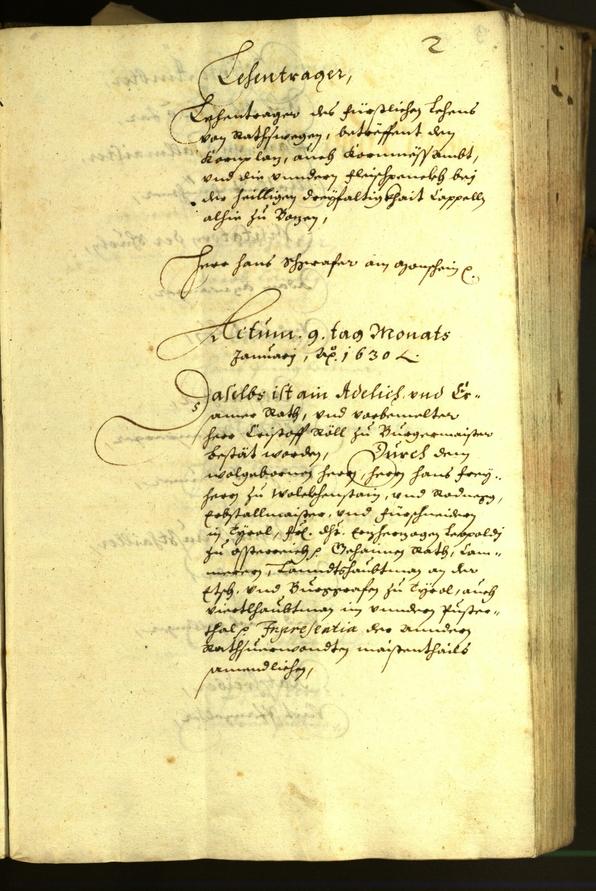 2
Lehentrager,
Lehentrager des fürstlichen Lehens
von Rathswegen, betreffent den
Kornplaz, auch Kornmessambt,
und die undern Fleischpenckh bej
der heilligen dreyfaltigkhait Cappelln
alhie zu Bozen,
Herr Hans Schrafer am
Actum. 9. tag Monats
Januarij, Ao. 1630
Daselbs ist ain Adelich. und Er-
samer Rath, und vorbemelter
herr Cristoff Röll zu Burgermaister
bestät worden, Durch den
wolgebornen herrn, herrn Hans Frey-
herrn zu Wolckhenstain, und Rodnegg,
Erbstallmaister, und Fürschneider
in Tyrol, Frl. Dht. Erzherzogen Leopoldj
zu Össterreich Gehaimen Rath, Cam-
merern, Lanndtshaubtman an der
Etsch, und Burggrafen zu Tyrol, auch
viertlhaubtman im undern Pusser-
thal Inpresentia der anndern
Rathsverwondten maistenthails
samendlichen,